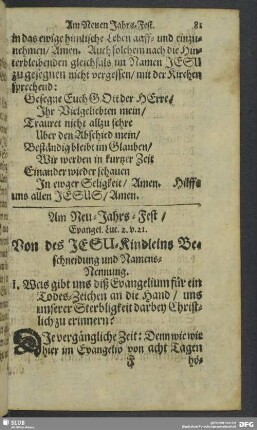 Am Neuen Jahrs-Fest. 81
in das ewige himlische Leben auff- und einzu-
nehmen / Amen. Auch solchem nach die Hin-
terbleibenden gleichfals im Namen JESU
zu gesegnen nicht vergessen / mit der Kirchen
sprechend:
Gesegne Euch GOtt der HErre /
Ihr Vielgeliebten mein /
Trauret nicht allzu sehre
Uber den Abschied mein /
Beständig bleibt im Glauben /
Wir werden in kurtzer Zeit
Einander wieder schauen
In ewger Seligkeit / Amen. Hilff
uns allen JESUS / Amen.
Am Neu-Jahrs-Fest /
Evangel. Luc. 2. v. 21.
Von des JESU-Kindleins Be-
schneidung und Namens-
Nennung.
1. Weis gibt uns diß Evangelium für ein
Todes-Zeichen an die Hand / uns
unserer Sterbligkeit darbey Christ-
lich zu erinnern?
Die vergängliche Zeit: Denn wie wir
hier im Evangelio von acht Tagen
F hö-
SLUB
DFG